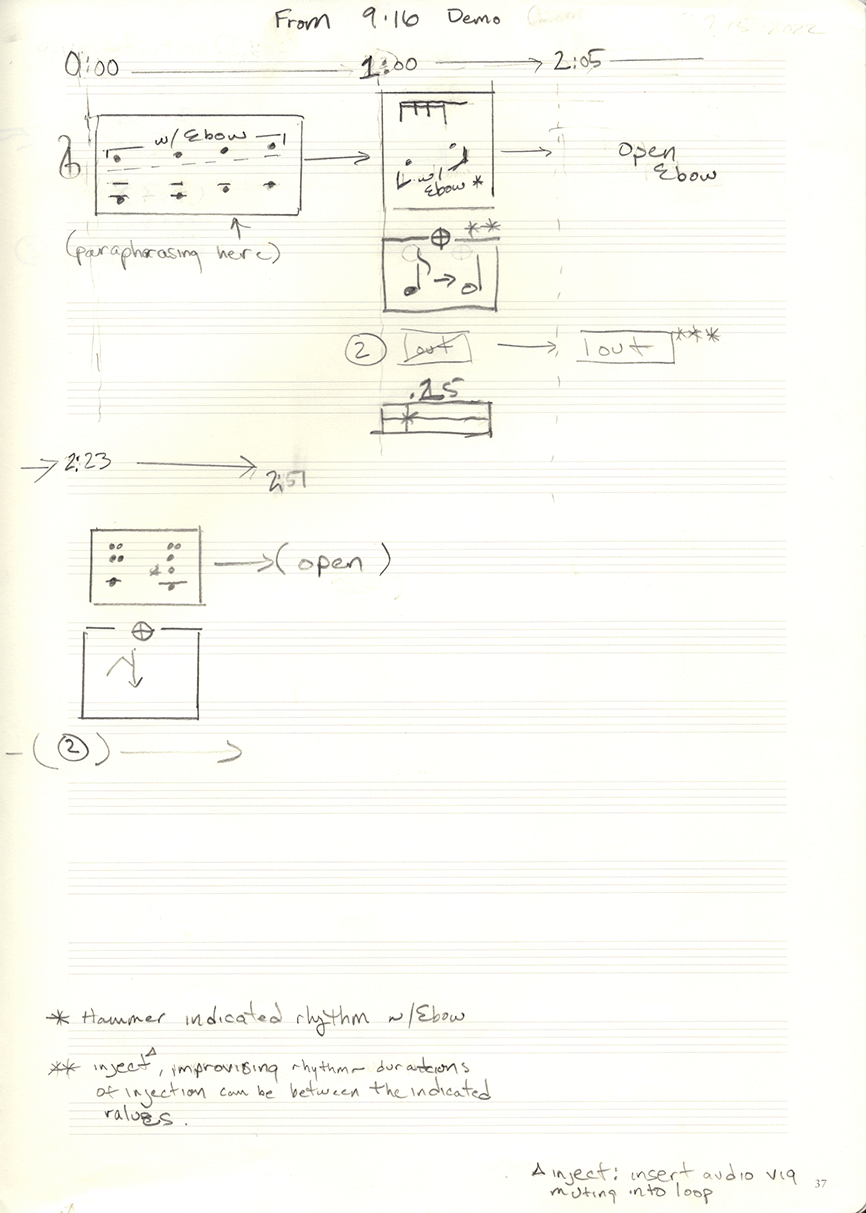 From 9.16 Demo
0:00 1:00 2:05
w/ Ebow
w/ Ebow *
Open
Ebow
(paraphrasing here)
**
2 1out 1out ***
.25
2:23 2:51
(open)
(2)
* Hammer indicated rhythm w/Ebow
** inject△, improvising rhythm durations
of injection can be between the indicated
values.
△ inject: insert audio via
muting into loop
37